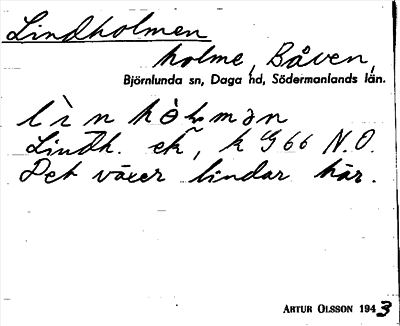 Lindholmen
holme, Båven,
Björnlunda sn, Daga hd, Södermanlands län.
Lindh. ek, k G 66 N.O.
Det växer lindar här.
ARTUR OLSSON 1943